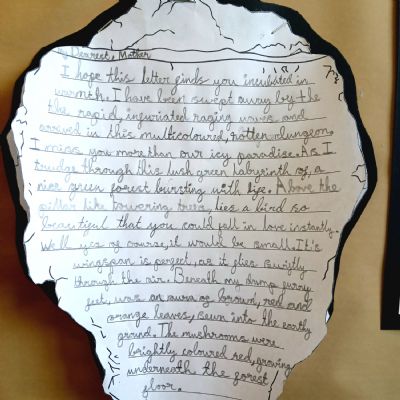 My Dearest, Mother
I hope this letter finds you incubated in
warmth. I have been swept away by the
the rapid, infuriated raging waves and
arrived in this multicoloured, rotten dungeon.
I miss you more than our icy paradise. As I
trudge through this lush green labyrinth of, a
nice green forest bursting with life. Above the
pillar like towering trees, lies a bird so
beautiful that you could fall in love instantly.
Well yes of course, it would be small. It's
wingspan is perfect, as it flies swiftly
through the air. Beneath my damp furry
feet, was an aura of brown, red and
orange leaves, sewn into the earthy
ground. The mushrooms were
brightly coloured red, growing
underneath the forest
floor.